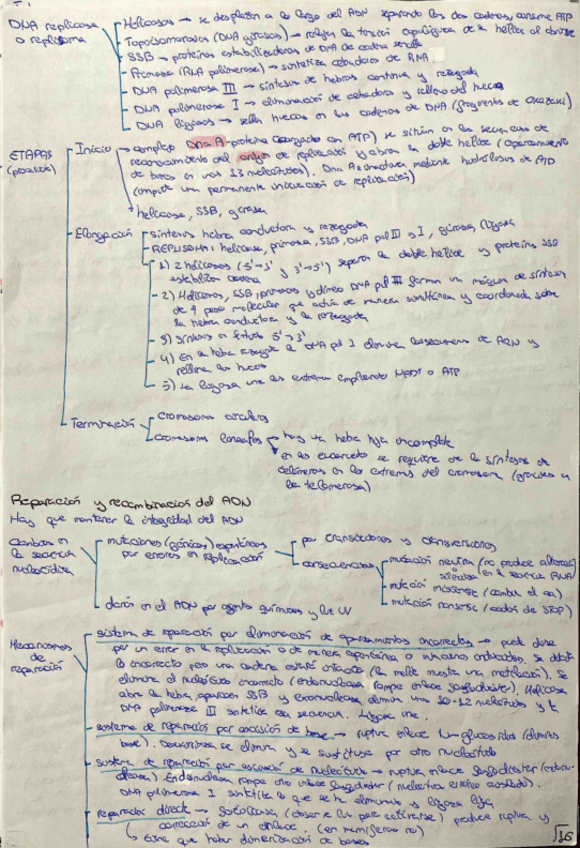 DNA replicasa o replisoma
Helicasas → se desplazan a lo largo del ADN separando las dos cadenas, consume ATP
Topoisomerasas (DNA girasas) → relajan la torsión de la hélice al abrirse
SSB → proteínas estabilizadoras de DNA de cadena sencilla
Primasa (RNA polimerasa) → sintetiza cebadores de RNA
DNA polimerasa III → síntesis de hebras continua y rezagada
DNA polimerasa I → eliminación de cebadores y relleno del hueco
DNA ligasas → sella huecos en las cadenas de DNA (fragmentos de Okazaki)
ETAPAS (procariota)
Inicio → complejo DnaA - proteína (cargado con ATP) se sitúan en las secuencias de
reconocimiento del origen de replicación y abren la doble hélice (apareamiento
de bases en unos 13 nucleótidos). Dna A mediante hidrólisis de ATP
(impide una permanente iniciación de replicación)
helicasa, SSB, girasa
Elongación
síntesis hebra conductora y rezagada
REPLISOMA: helicasa, primasa, SSB, DNA pol III y I, girasa, ligasa
1) 2 helicasas (5'→3' y 3'→5') separan la doble hélice y proteínas SSB
estabilizan cadena
2) Helicasas, SSB, primasas y dímero DNA pol III forman una máquina de síntesis
de ↑ peso molecular que actúa de manera simultánea y coordinada sobre
la hebra conductora y la rezagada
3) Síntesis en sentido 5'→3'
4) En la hebra rezagada la DNA pol I elimina las secuencias de ARN y
rellena los huecos
5) La ligasa une los extremos empleando NAD+ o ATP
Terminación
cromosoma circular
cromosoma lineales → hay una hebra hija incompleta
en los eucariotas se requiere de la síntesis de
telómeros en los extremos del cromosoma (gracias a
la telomerasa)
Reparación y recombinación del ADN
Hay que mantener la integridad del ADN
Cambios en la secuencia nucleotídica
mutaciones (génicas) espontáneas por errores en replicación
por transiciones y transversiones
consecuencias
mutación neutra (no produce alteraciones en la secuencia RNA)
mutación missense (cambia el aa)
mutación nonsense (codón de STOP)
daños en el ADN por agentes químicos y luz UV
Mecanismos de reparación
sistema de reparación por eliminación de apareamientos incorrectos → puede darse
por un error en la replicación o de manera espontánea o mutaciones inducidas. Se detecta
lo incorrecto pero una cadena estará (la molde muestra una metilación). Se
elimina el nucleótido incorrecto (endonucleasa rompe enlace fosfodiéster). Helicasa
abre la hebra, aparecen SSB y exonucleasa elimina unos 10-12 nucleótidos y la
DNA polimerasa III sintetiza esa secuencia. Ligasa une.
sistema de reparación por escisión de base → ruptura enlace N-glucosídico (elimina
base). se elimina y se sustituye por otro nucleótido
sistema de reparación por escisión de nucleótidos → ruptura enlace fosfodiéster
Endonucleasa rompe otro enlace fosfodiéster (nucleótido erróneo aislado).
DNA polimerasa I sintetiza lo que se ha eliminado y ligasa liga
reparación directa → fotoliasa (absorbe luz para activarse) produce ruptura y
corrección de un enlace. (en mamíferos no)
tiene que haber dimerización de bases
16